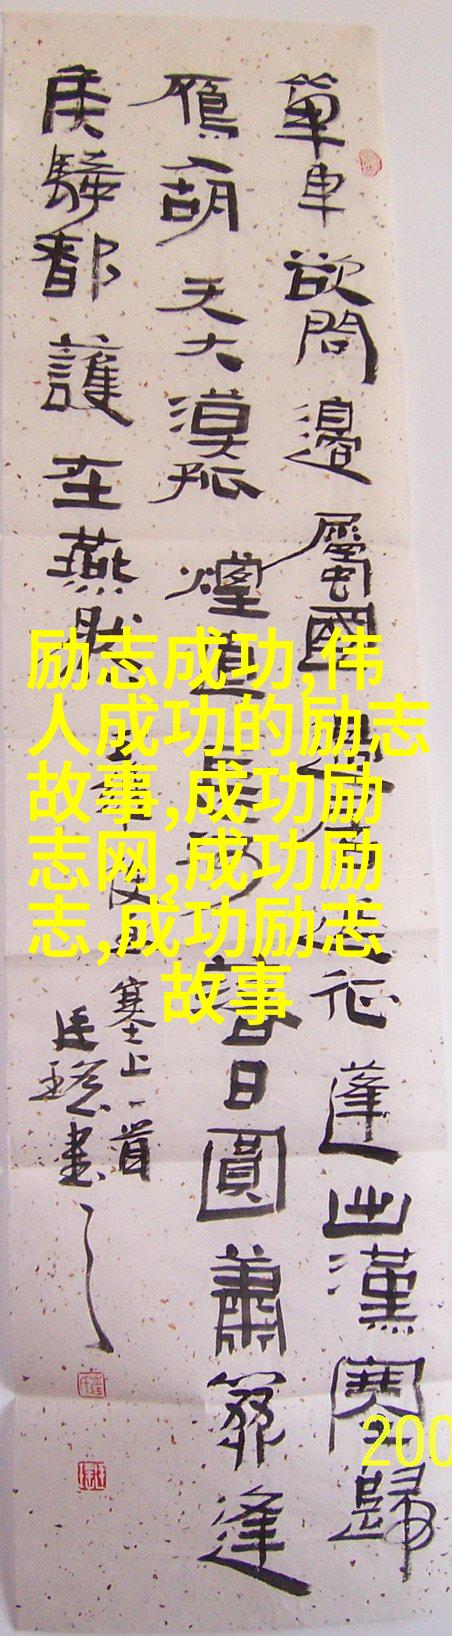 單車欲問邊屬國過居延征蓬出漢塞歸
鴈入胡天大漠孤煙直長河落日圓蕭關逢
候騎都護在燕然
塞上一首
書
励志成功,伟
人成功的励志
故事,成功励
志网,成功励
志,成功励志
故事
200